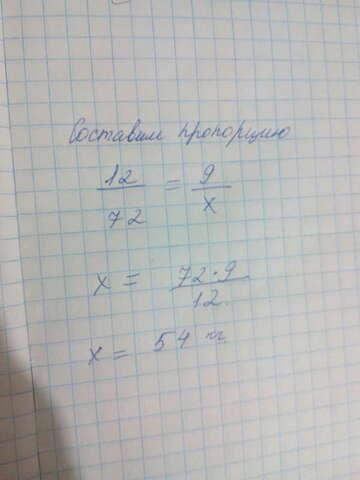 Составим пропорцию
12/72 = 9/x
x = 72·9/12
x = 54 кг